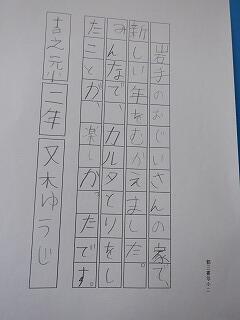 岩手のおじいさんの家で、
新しい年をむかえました。
みんなで、カルタとりをし
たことが、楽しかったです。
吉之元小 二年 又木ゆうじ